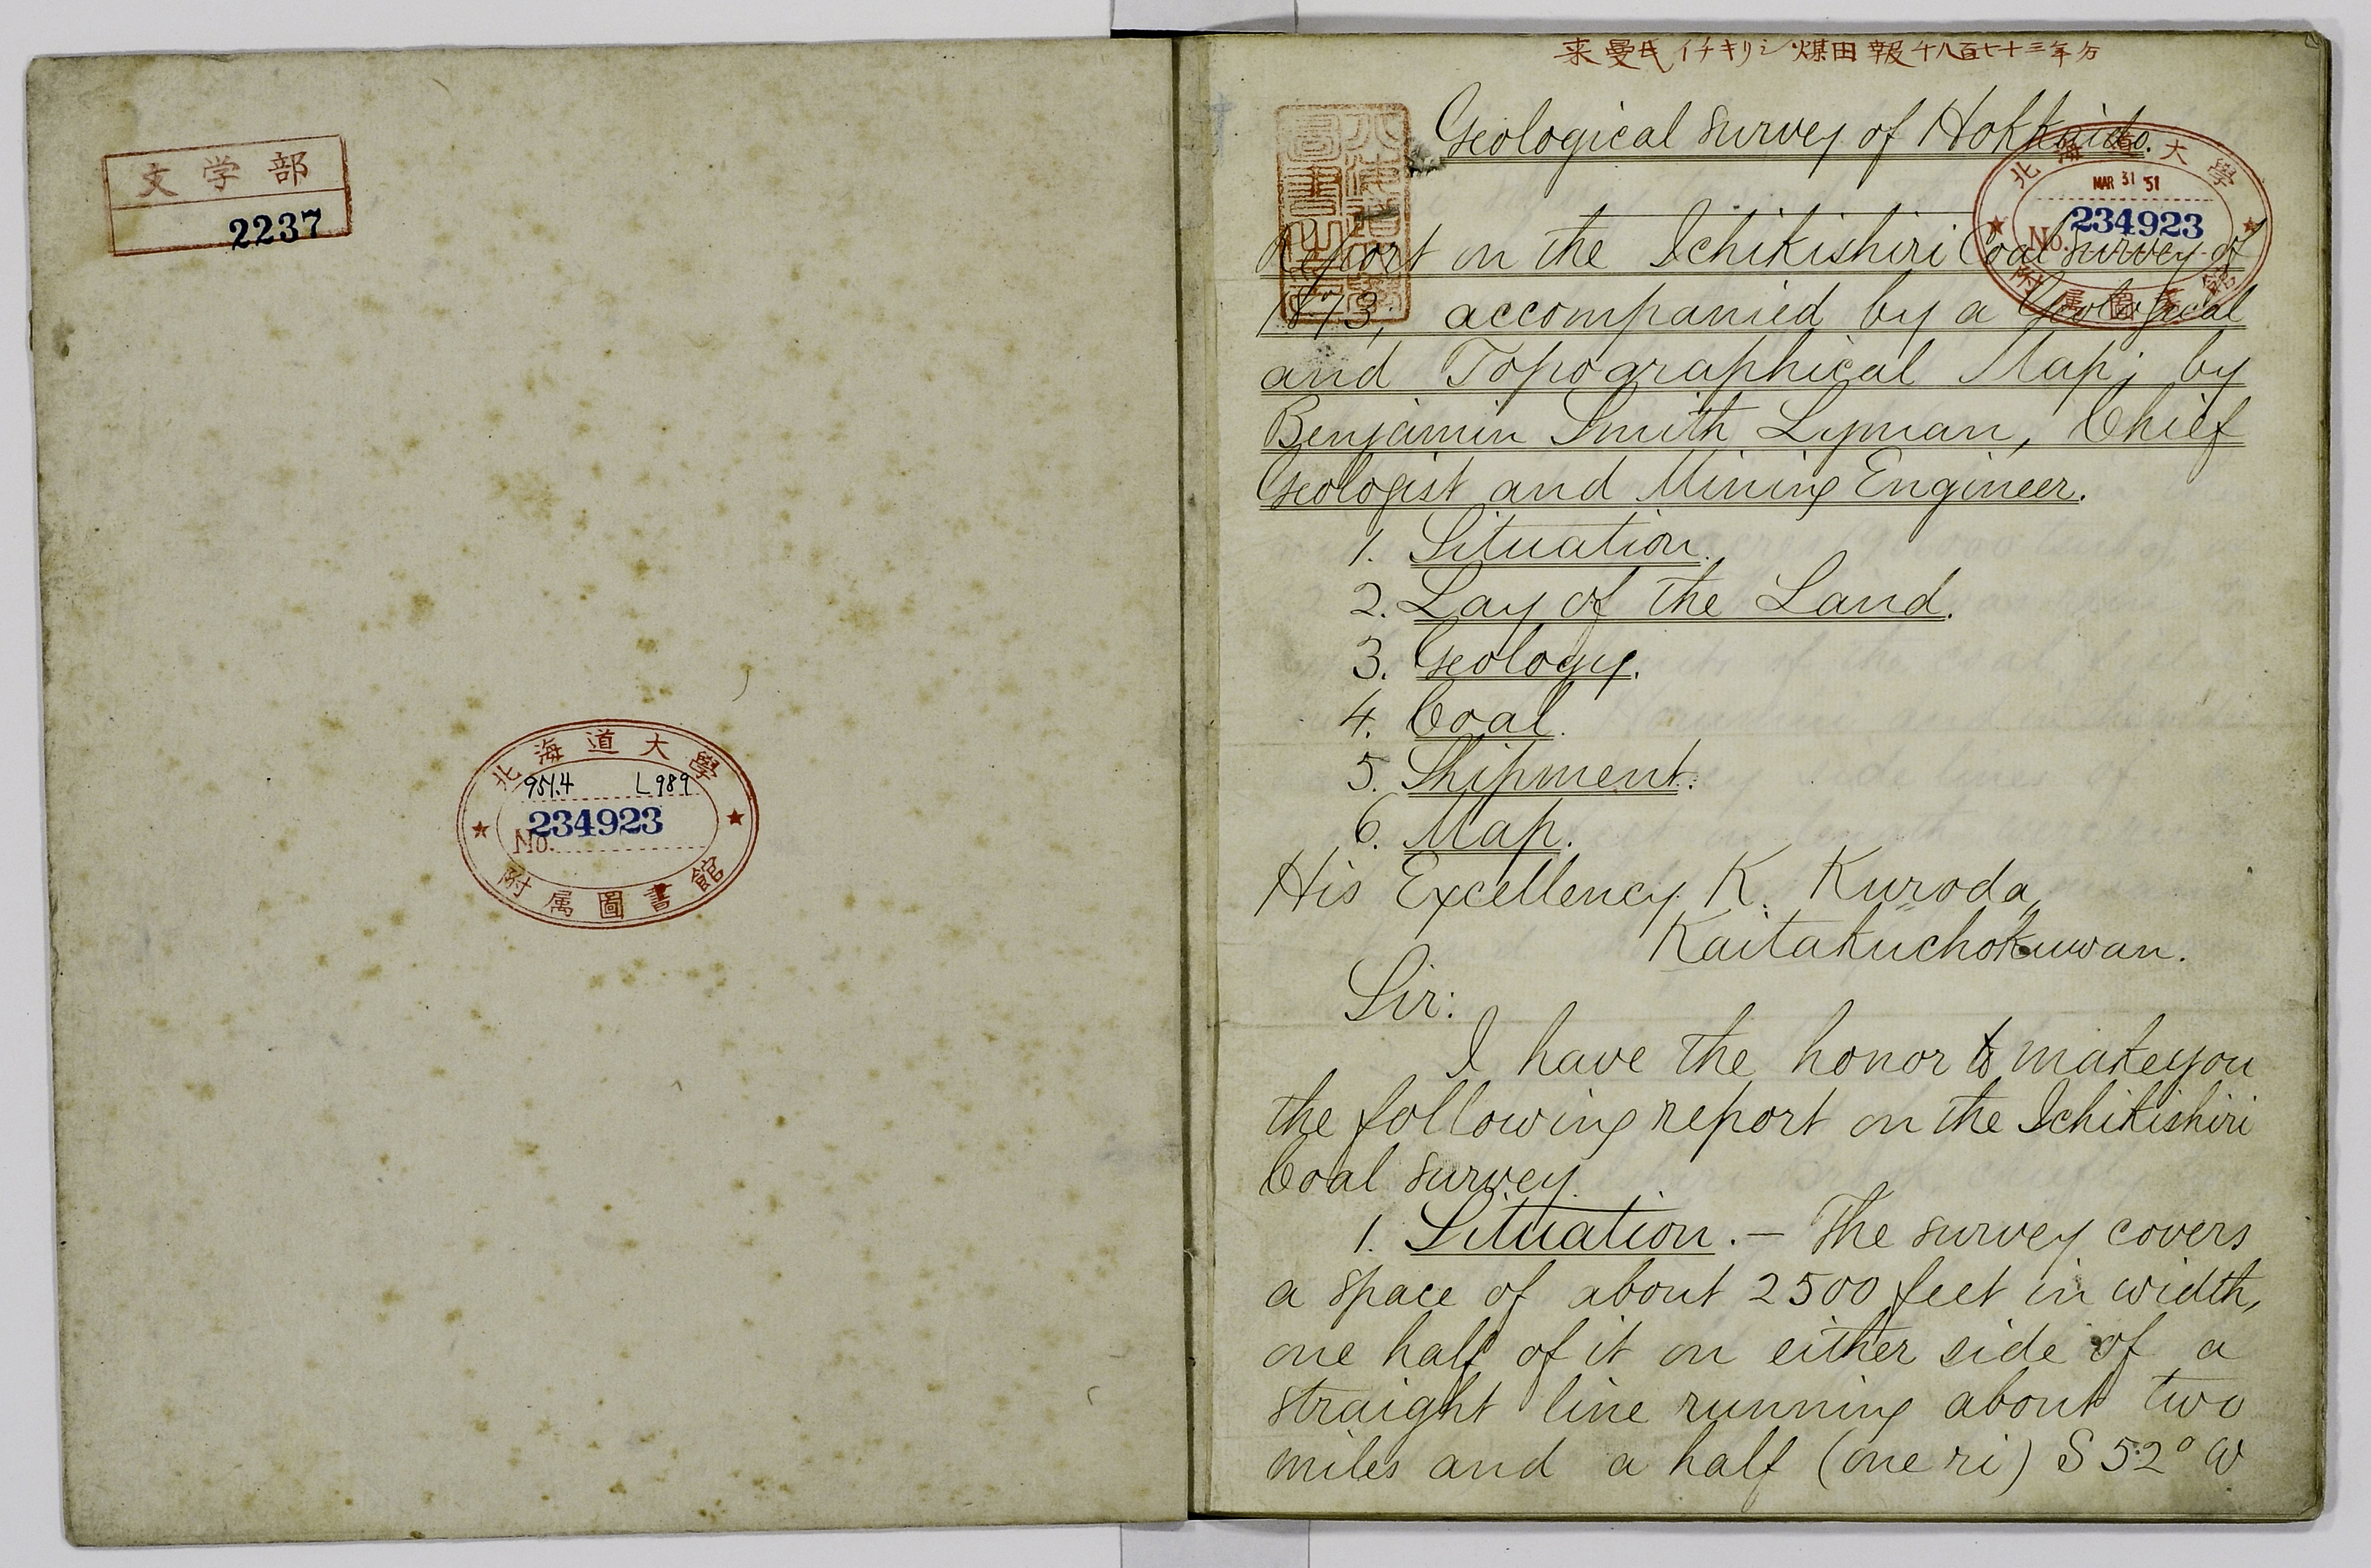 文学部
2237
北海道大學
951.4 L989
234923
No.
附属圖書館
来曼氏イチキリシ煤田報千八百七十三年分
Geological Survey of Hokkaido.
北海道大學
MAR 31 '51
234923
No.
附属圖書館
Report on the Ichikishiri Coal Survey of
1873, accompanied by a Geological
and Topographical Map; by
Benjamin Smith Lyman, Chief
Geologist and Mining Engineer.
1. Situation.
2. Lay of the Land.
3. Geology.
4. Coal.
5. Shipment.
6. Map.
His Excellency K. Kuroda,
Kaitakuchokuwan.
Sir:
I have the honor to make you
the following report on the Ichikishiri
Coal survey.
1. Situation.— The survey covers
a space of about 2500 feet in width,
one half of it on either side of a
straight line running about two
miles and a half (one ri) S 52° W